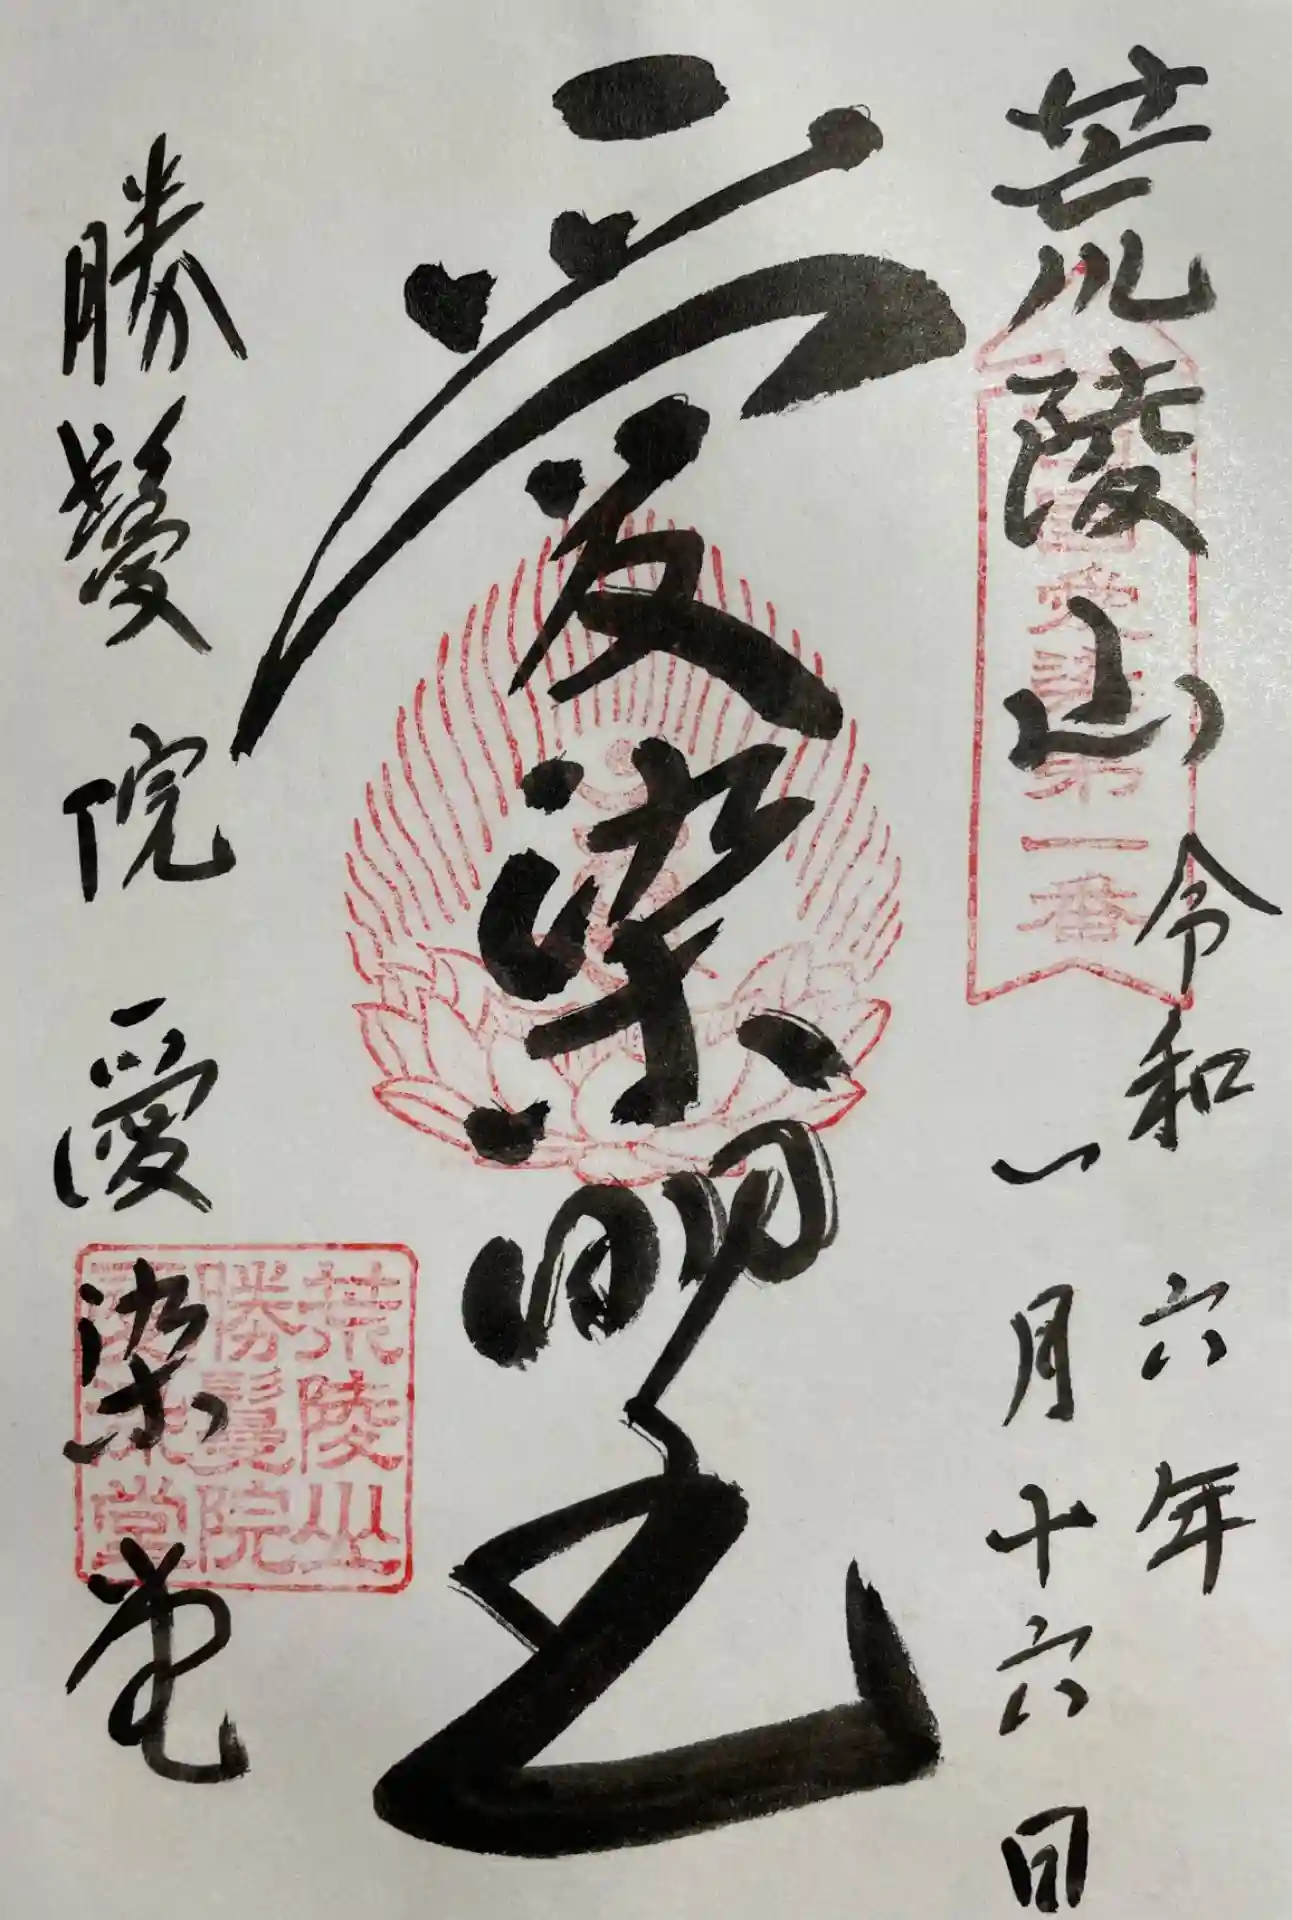 荒陵山
西国愛染第一番
令和六年
一月十六日
愛染明王
勝鬘院愛染堂
荒陵山
勝鬘院
愛染堂